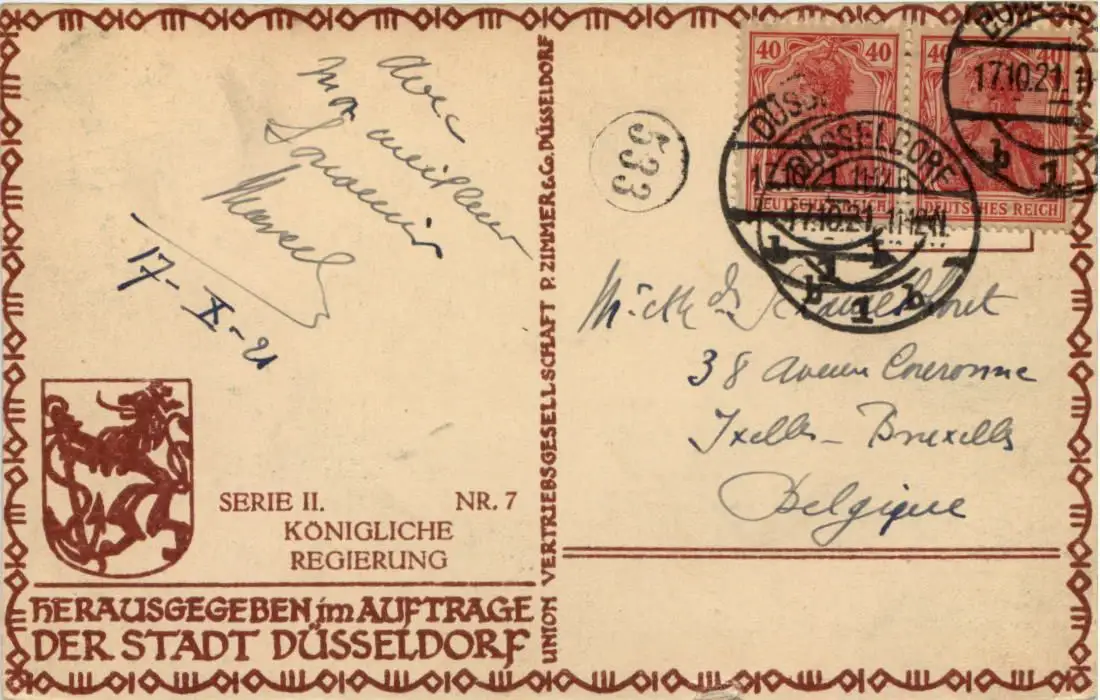 avec
mon meilleur
Souvenir
Marcel
17-X-21
SERIE II. NR. 7
KÖNIGLICHE
REGIERUNG
HERAUSGEGEBEN im AUFTRAGE
DER STADT DÜSSELDORF
UNION VERTRIEBSGESELLSCHAFT P. ZIMMER & Co. DÜSSELDORF
533
40 40 40 40
DEUTSCHES REICH DEUTSCHES REICH
DÜSSELDORF
17.10.21. 11-12 N.
b 1 b
DÜSSELDORF
17.10.21. 11-12 N.
b 1 b
17.10.21. 11
b 1
38 Avenue Couronne
Ixelles - Bruxelles
Belgique